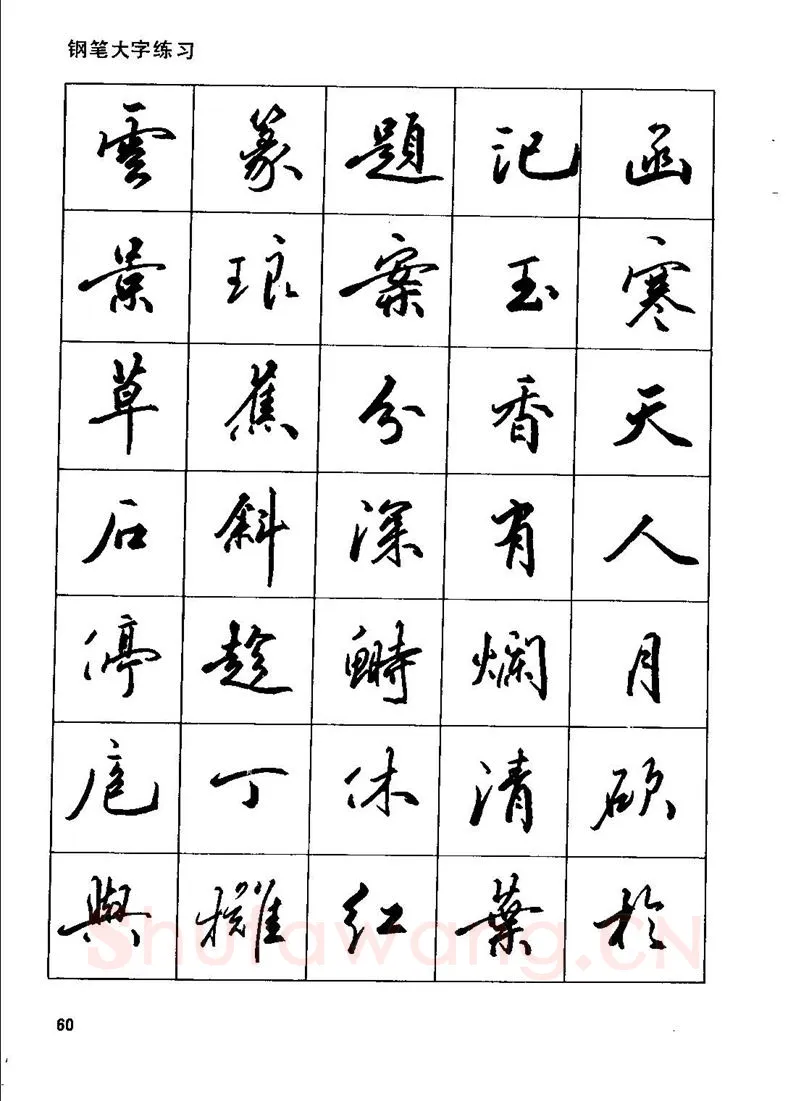 钢笔大字练习
雲篆題记函
景琅案玉寒
草蕉分香天
石斜深有人
停趁鰣爛月
扈丁休清碩
與權红葉於
Shufawang.CN
60